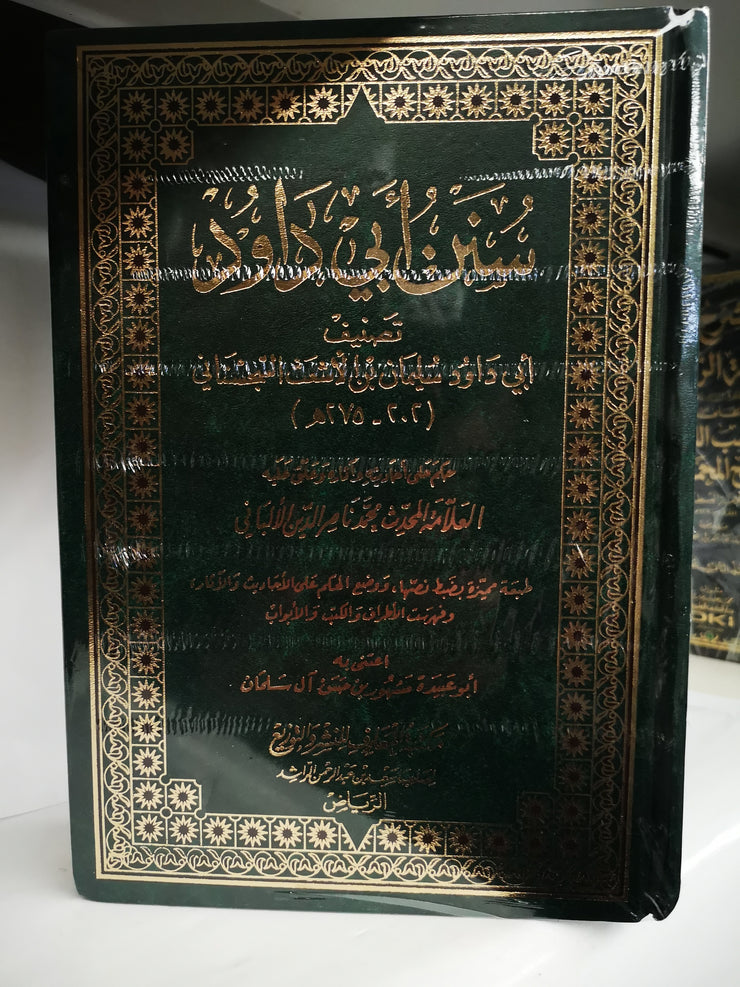 سُنَنُ أَبِي دَاوُد
تَصنِيفُ
أبي دَاوُد سُليمَان بْن الأشعَث السِّجِسْتَاني
(٢٠٢ - ٢٧٥هـ)
حكم على أحاديثه وآثاره وعلق عليه
العَلَّامَة المحَدِّث محمَّد نَاصِر الدِّين الألبَاني
طبعة مميزة بضبط نصها، ووضع الحكم على الأحاديث والآثار،
وفهرست الأطراف والكتب والأبواب
اعتنى به
أبو عبيدة مشهور بن حسن آل سلمان
مكتبة المعارف للنشر والتوزيع
لصاحبها سعد بن عبد الرحمن الراشد
الريَاض